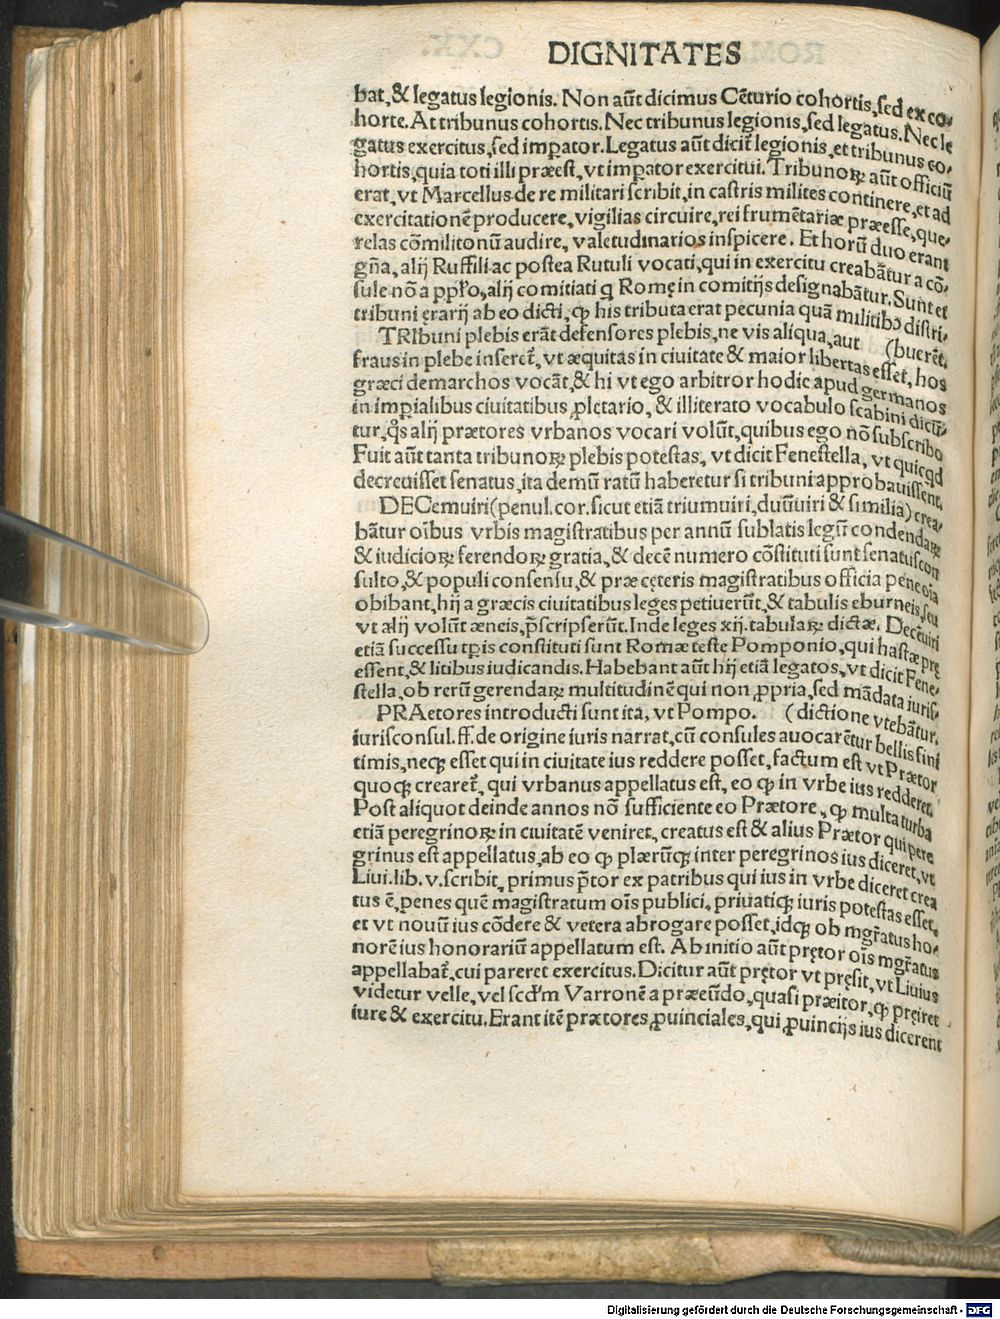 DIGNITATES
bat,& legatus legionis. Non aūt dicimus Cēturio cohortis,sed ex co-
horte. At tribunus cohortis. Nec tribunus legionis,sed legatus. Nec le
gatus exercitus,sed impator. Legatus aūt dicit̃ legionis,et tribunus co-
hortis,quia toti illi præest,vt impator exercitui. Tribunoꝝ aūt officiū
erat,vt Marcellus de re militari scribit,in castris milites continere,et ad
exercitationē producere,vigilias circuire,rei frumētariæ præesse,que-
relas cōmilitonū audire, valetudinarios inspicere. Et horū duo erant
gña,alij Ruffili ac postea Rutuli vocati,qui in exercitu creabātur a cō-
sule nō a ppło,alij comitiati q Romę in comitijs designabātur. Sunt et
tribuni ęrarij ab eo dicti,ꝙ his tributa erat pecunia quā militibꝰ distri-
TRIbuni plebis erāt defensores plebis,ne vis aliqua,aut (buerēt.
fraus in plebe inseret̃,vt æquitas in ciuitate & maior libertas esset,hos
græci demarchos vocāt,& hi vt ego arbitror hodie apud germanos
in impialibus ciuitatibus ꝓletario, & illiterato vocabulo scabini dicū-
tur,q̊s alij prætores vrbanos vocari volūt,quibus ego nō subscribo
Fuit aūt tanta tribunoꝝ plebis potestas, vt dicit Fenestella, vt quicqd
decreuisset senatus,ita demū ratū haberetur si tribuni approbauissent.
DECemuiri(penul.cor.sicut etiā triumuiri,duūuiri & similia)crea-
bātur oībus vrbis magistratibus per annū sublatis legū condendaꝝ
& iudicioꝝ ferendoꝝ gratia,& decē numero cōstituti sunt senatuscon
sulto,& populi consensu,& præ cęteris magistratibus officia pene oīa
obibant,hij a græcis ciuitatibus leges petiuerūt,& tabulis eburneis,seu
vt alij volūt æneis,p̄scripserūt. Inde leges xij.tabulaꝝ dictæ. Decēuiri
etiā successu tp̄is constituti sunt Romæ teste Pomponio,qui hastæ pre
essent,& litibus iudicandis. Habebant aūt hij etiā legatos,vt dicit Fene-
stella,ob rerū gerendaꝝ multitudinē qui non ꝓpria,sed mādata iuris-
PRAetores introducti sunt ita, vt Pompo. (dictione vtebātur.
iurisconsul.ff.de origine iuris narrat,cū consules auocarētur bellis fini
timis,neqȝ esset qui in ciuitate ius reddere posset,factum est vt Prætor
quoqȝ crearet̃, qui vrbanus appellatus est, eo ꝙ in vrbe ius redderet.
Post aliquot deinde annos nō sufficiente eo Prætore, ꝙ multa turba
etiā peregrinoꝝ in ciuitatē veniret, creatus est & alius Prætor qui pere
grinus est appellatus,ab eo ꝙ plærūqȝ inter peregrinos ius diceret,vt
Liui.lib. v.scribit, primus p̄tor ex patribus qui ius in vrbe diceret crea
tus ē,penes quē magistratum oīs publici, priuatiqȝ iuris potestas esset,
et vt nouū ius cōdere & vetera abrogare posset,idqȝ ob mgr̄atus ho-
norē ius honorariū appellatum est. Ab initio aūt prętor oīs mgr̄atus
appellabat̃,cui pareret exercitus. Dicitur aūt prętor vt pręsit,vt Liuius
videtur velle,vel scdm Varronē a præeūdo,quasi præitor,ꝙ pręiret
iure & exercitu. Erant itē prætores ꝓuinciales,qui ꝓuincijs ius dicerent
Digitalisierung gefördert durch die Deutsche Forschungsgemeinschaft - DFG